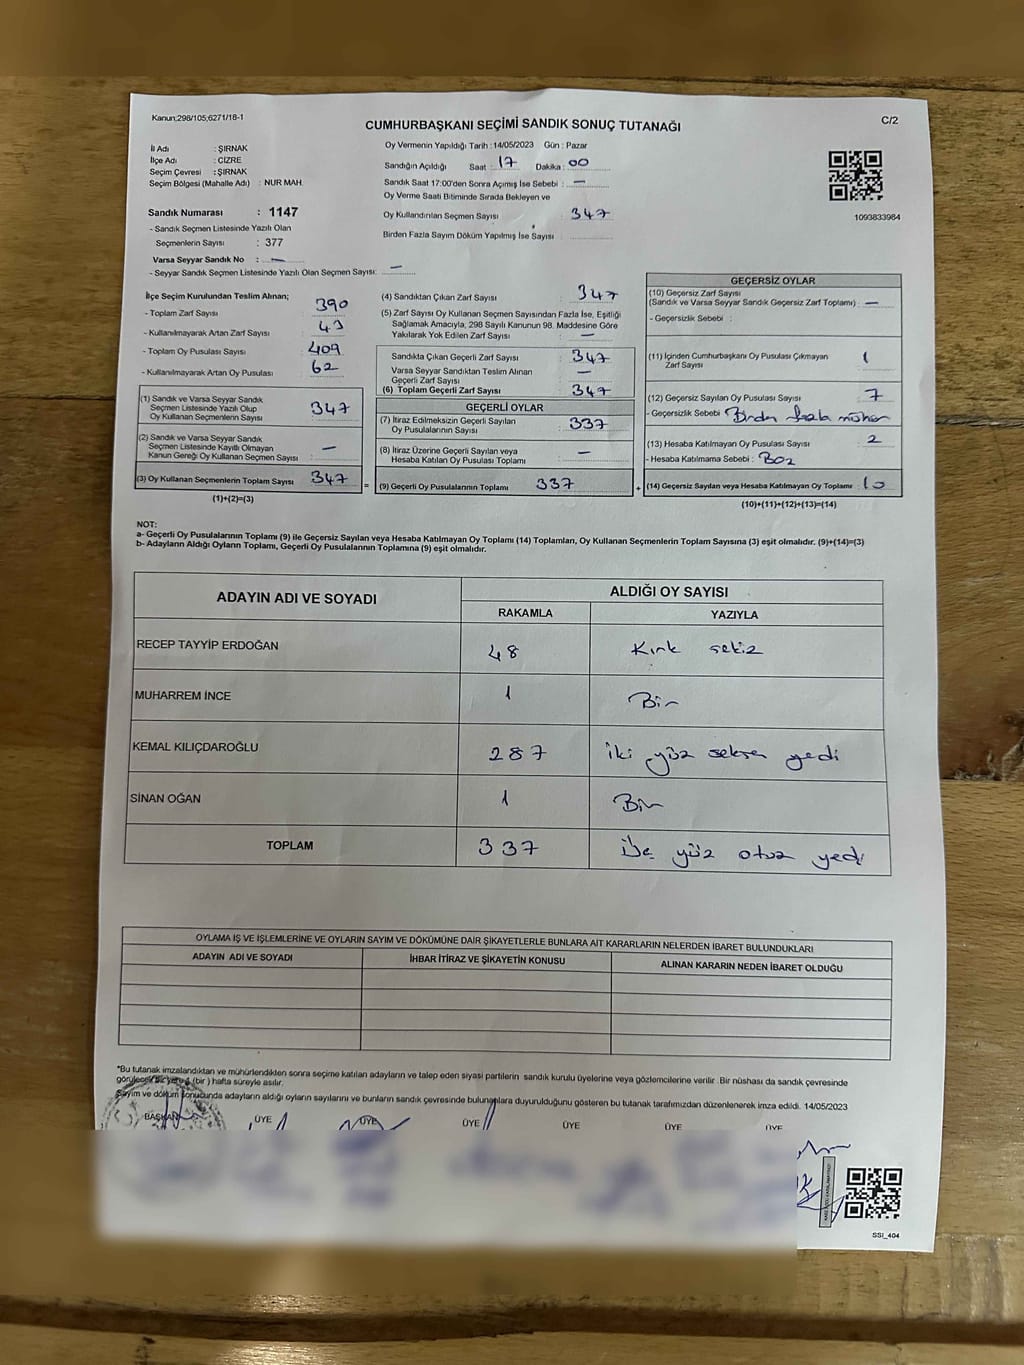 Kanun;298/105;6271/18-1
CUMHURBAŞKANI SEÇİMİ SANDIK SONUÇ TUTANAĞI
C/2
İl Adı : ŞIRNAK
İlçe Adı : CİZRE
Seçim Çevresi : ŞIRNAK
Seçim Bölgesi (Mahalle Adı) : NUR MAH.
Oy Vermenin Yapıldığı Tarih : 14/05/2023 Gün : Pazar
Sandığın Açıldığı Saat : 17 Dakika : 00
Sandık Saat 17:00'den Sonra Açımış İse Sebebi : —
Oy Verme Saati Bitiminde Sırada Bekleyen ve
Oy Kullandırılan Seçmen Sayısı : 347
Birden Fazla Sayım Döküm Yapılmış İse Sayısı :
1093833984
Sandık Numarası : 1147
- Sandık Seçmen Listesinde Yazılı Olan
Seçmenlerin Sayısı : 377
Varsa Seyyar Sandık No : —
- Seyyar Sandık Seçmen Listesinde Yazılı Olan Seçmen Sayısı: —
İlçe Seçim Kurulundan Teslim Alınan;
- Toplam Zarf Sayısı : 390
- Kullanılmayarak Artan Zarf Sayısı : 43
- Toplam Oy Pusulası Sayısı : 409
- Kullanılmayarak Artan Oy Pusulası : 62
(1) Sandık ve Varsa Seyyar Sandık
Seçmen Listesinde Yazılı Olup
Oy Kullanan Seçmenlerin Sayısı : 347
(2) Sandık ve Varsa Seyyar Sandık
Seçmen Listesinde Kayıtlı Olmayan
Kanun Gereği Oy Kullanan Seçmen Sayısı : —
(3) Oy Kullanan Seçmenlerin Toplam Sayısı : 347
(1)+(2)=(3)
(4) Sandıktan Çıkan Zarf Sayısı : 347
(5) Zarf Sayısı Oy Kullanan Seçmen Sayısından Fazla İse, Eşitliği
Sağlamak Amacıyla, 298 Sayılı Kanunun 98. Maddesine Göre
Yakılarak Yok Edilen Zarf Sayısı : —
Sandıkta Çıkan Geçerli Zarf Sayısı : 347
Varsa Seyyar Sandıktan Teslim Alınan
Geçerli Zarf Sayısı : —
(6) Toplam Geçerli Zarf Sayısı : 347
GEÇERLİ OYLAR
(7) İtiraz Edilmeksizin Geçerli Sayılan
Oy Pusulalarının Sayısı : 337
(8) İtiraz Üzerine Geçerli Sayılan veya
Hesaba Katılan Oy Pusulası Toplamı : —
= (9) Geçerli Oy Pusulalarının Toplamı : 337
GEÇERSİZ OYLAR
(10) Geçersiz Zarf Sayısı
(Sandık ve Varsa Seyyar Sandık Geçersiz Zarf Toplamı) : —
- Geçersizlik Sebebi :
(11) İçinden Cumhurbaşkanı Oy Pusulası Çıkmayan
Zarf Sayısı : 1
(12) Geçersiz Sayılan Oy Pusulası Sayısı : 7
- Geçersizlik Sebebi : Birden fazla mühür
(13) Hesaba Katılmayan Oy Pusulası Sayısı : 2
- Hesaba Katılmama Sebebi : Boz
+ (14) Geçersiz Sayılan veya Hesaba Katılmayan Oy Toplamı : 10
(10)+(11)+(12)+(13)=(14)
NOT:
a- Geçerli Oy Pusulalarının Toplamı (9) ile Geçersiz Sayılan veya Hesaba Katılmayan Oy Toplamı (14) Toplamları, Oy Kullanan Seçmenlerin Toplam Sayısına (3) eşit olmalıdır. (9)+(14)=(3)
b- Adayların Aldığı Oyların Toplamı, Geçerli Oy Pusulalarının Toplamına (9) eşit olmalıdır.
ADAYIN ADI VE SOYADI
ALDIĞI OY SAYISI
RAKAMLA YAZIYLA
RECEP TAYYİP ERDOĞAN 48 Kırk sekiz
MUHARREM İNCE 1 Bir
KEMAL KILIÇDAROĞLU 287 iki yüz seksen yedi
SİNAN OĞAN 1 Bir
TOPLAM 337 üç yüz otuz yedi
OYLAMA İŞ VE İŞLEMLERİNE VE OYLARIN SAYIM VE DÖKÜMÜNE DAİR ŞİKAYETLERLE BUNLARA AİT KARARLARIN NELERDEN İBARET BULUNDUKLARI
ADAYIN ADI VE SOYADI İHBAR İTİRAZ VE ŞİKAYETİN KONUSU ALINAN KARARIN NEDEN İBARET OLDUĞU
*Bu tutanak imzalandıktan ve mühürlendikten sonra seçime katılan adayların ve talep eden siyasi partilerin sandık kurulu üyelerine veya gözlemcilerine verilir .Bir nüshası da sandık çevresinde
görülecek bir yere 1 (bir ) hafta süreyle asılır.
Sayım ve döküm sonucunda adayların aldığı oyların sayılarını ve bunların sandık çevresinde bulunanlara duyurulduğunu gösteren bu tutanak tarafımızdan düzenlenerek imza edildi. 14/05/2023
BAŞKAN ÜYE ÜYE ÜYE ÜYE ÜYE ÜYE
SSI_404